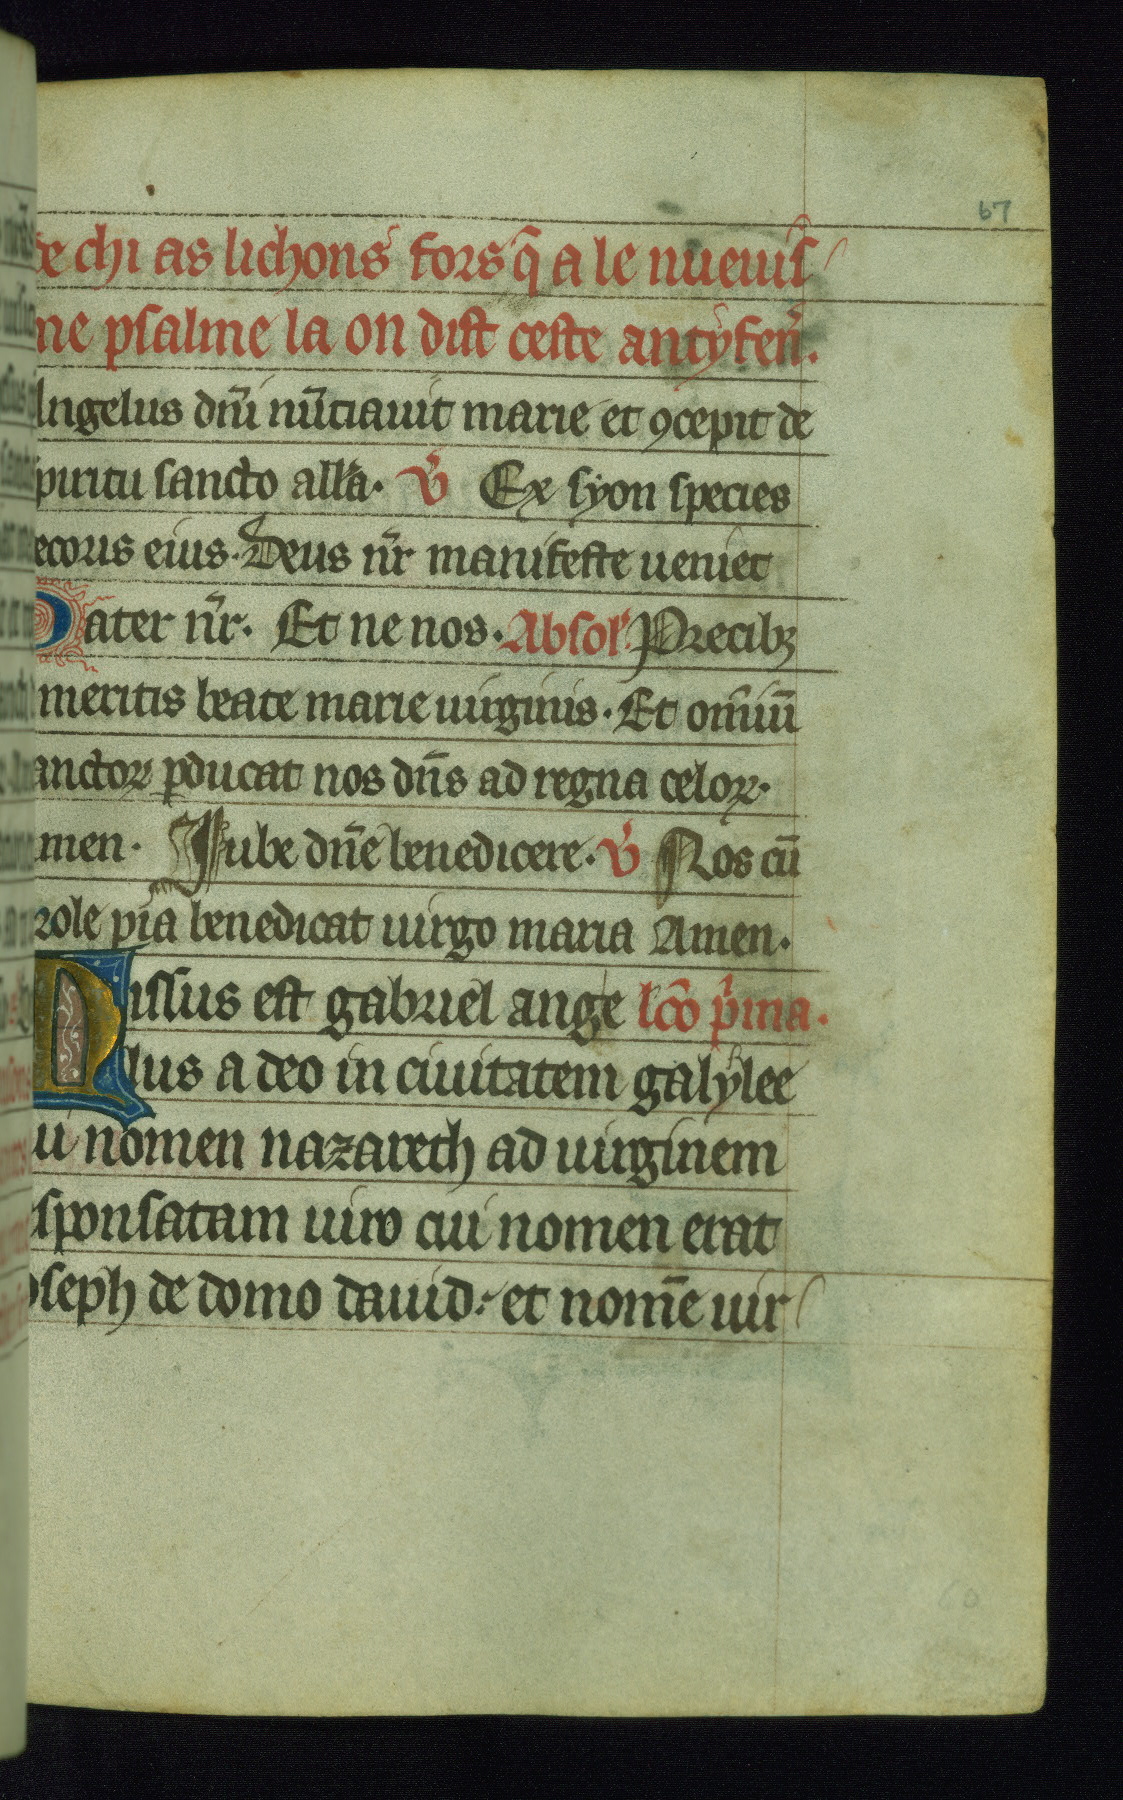 67
de chi as lichons fors q̃ a le nueuis
me psalme la on dist ceste antyfen̄.
Angelus dn̄i nūtiauit marie et ꝯcepit de
spiritu sancto all'a. v̄ Ex syon species
decoris eius. Deus nr̄ manifeste ueniet
Pater nr̄. Et ne nos. Absol' Precibꝫ
meritis beate marie uirginis. Et om̄iū
sanctoꝝ ꝑducat nos dn̄s ad regna celoꝝ.
amen. Iube dn̄e benedicere. v̄ Nos cū
prole pia benedicat uirgo maria Amen.
Missus est gabriel ange lcō p̄ma.
lus a deo in ciuitatem galylee
cui nomen nazareth ad uirginem
desponsatam uiro cui nomen erat
ioseph de domo dauid. et nom̄e uir